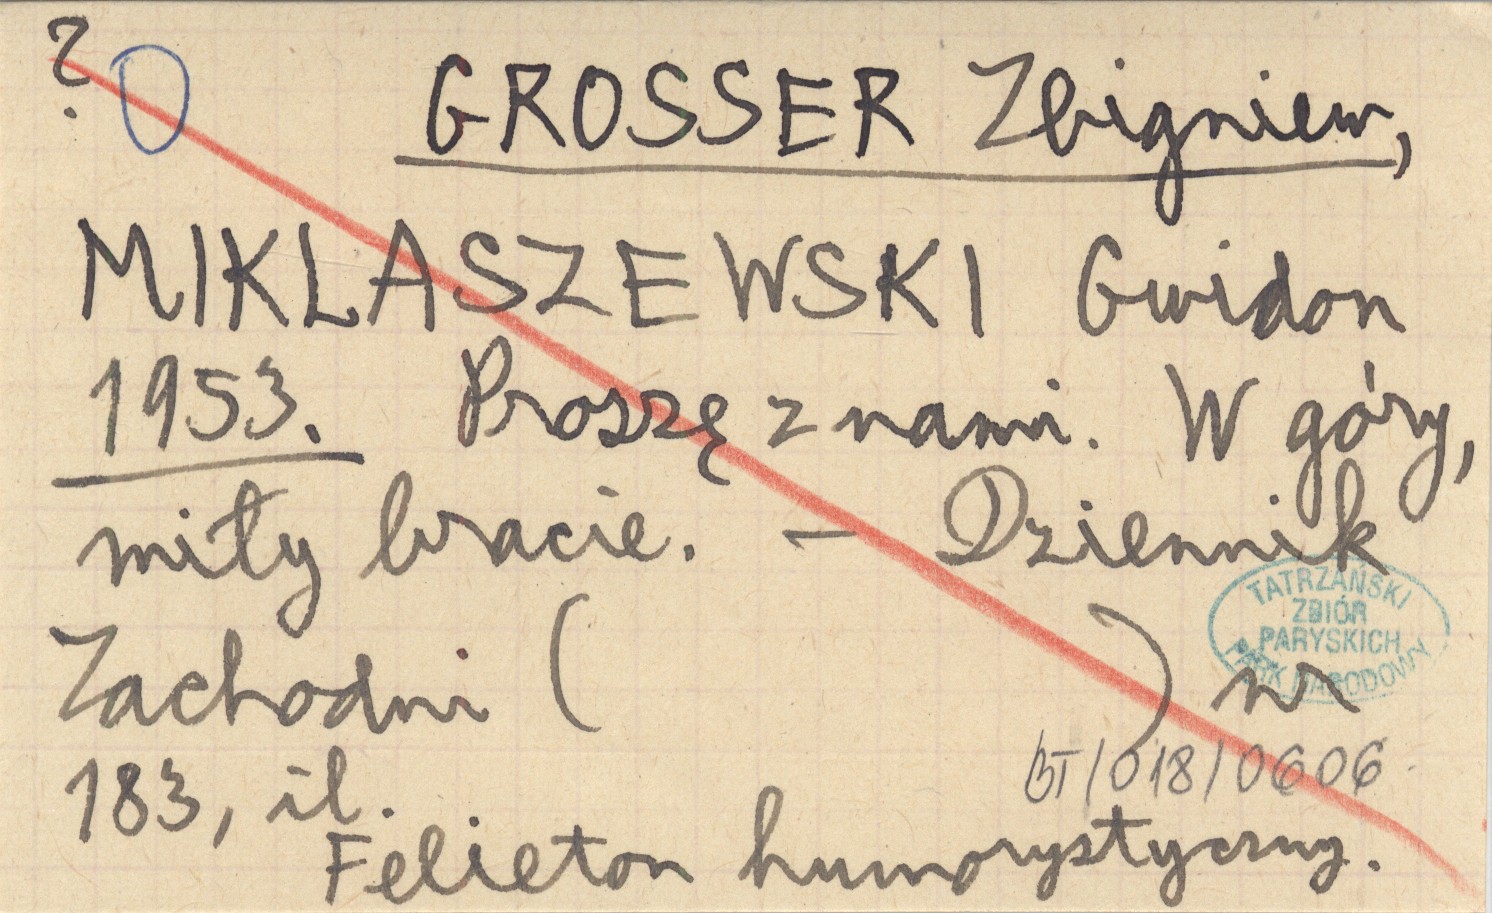 ? O GROSSER Zbigniew,
MIKLASZEWSKI Gwidon
1953. Proszę z nami. W góry,
miły bracie. – Dziennik
TATRZAŃSKI
ZBIÓR
PARYSKICH
PARK NARODOWY
Zachodni ( ) nr
BT/018/0606
183, il.
Felieton humorystyczny.